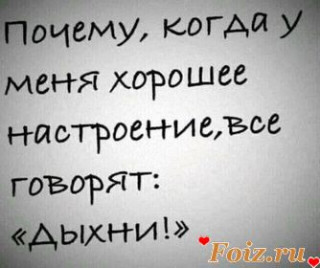 Почему, когда у
меня хорошее
настроение,все
говорят:
«Дыхни!»
Foiz.ru